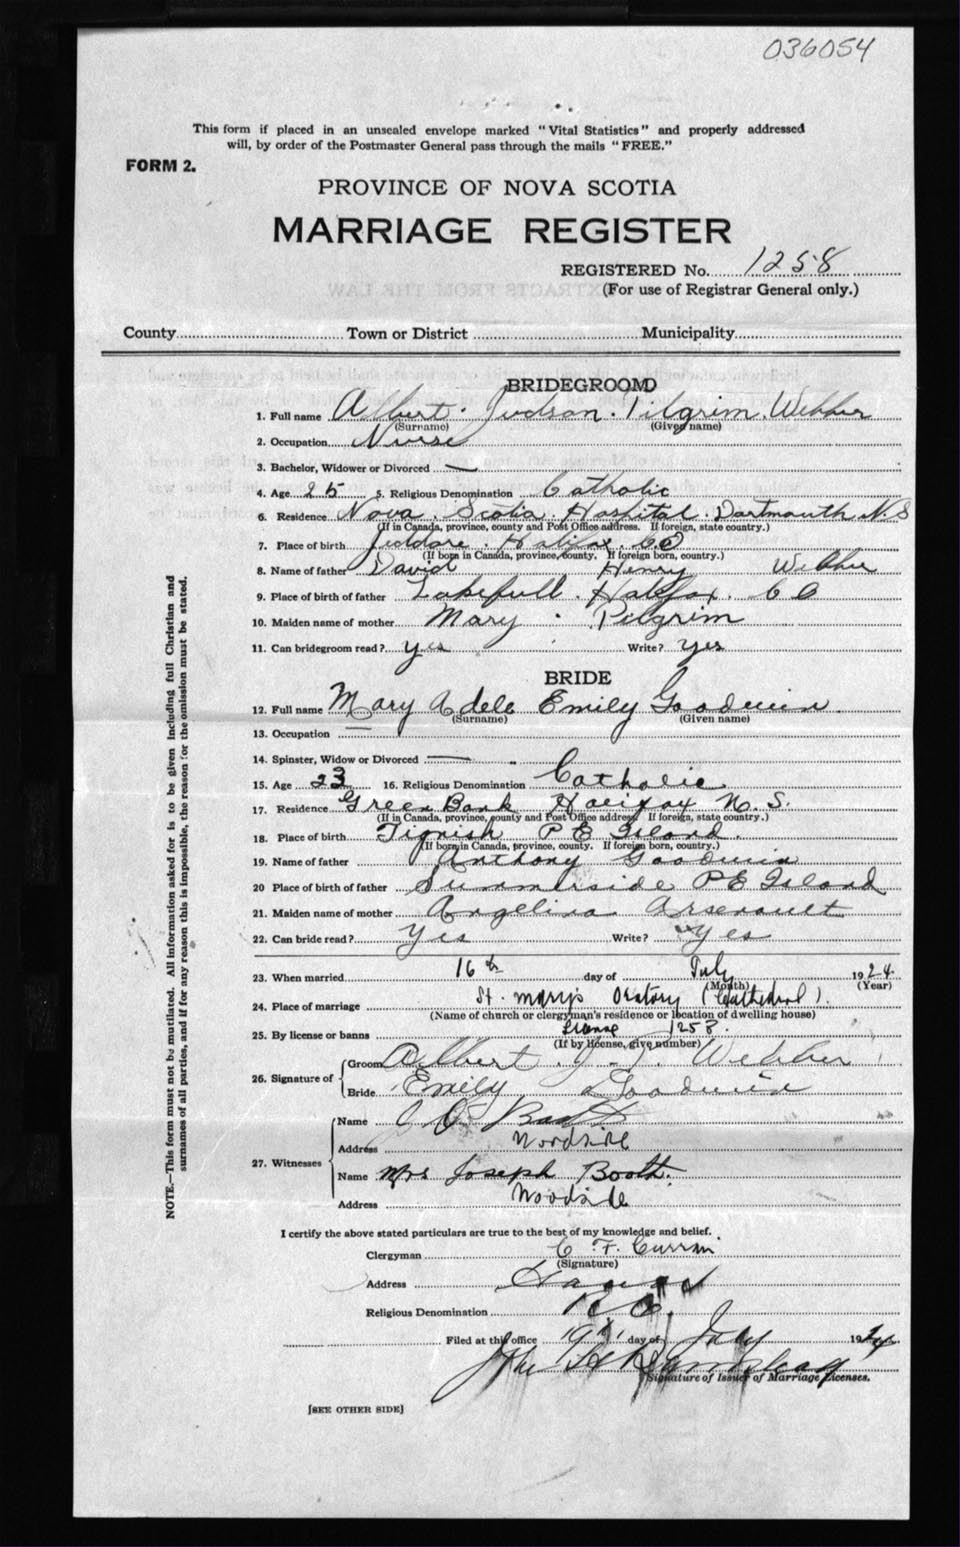 036054
This form if placed in an unsealed envelope marked "Vital Statistics" and properly addressed
will, by order of the Postmaster General pass through the mails "FREE."
FORM 2.
PROVINCE OF NOVA SCOTIA
MARRIAGE REGISTER
REGISTERED No. 1258
(For use of Registrar General only.)
County Town or District Municipality
BRIDEGROOM
1. Full name Albert Judson Pilgrim Webber
(Surname) (Given name)
2. Occupation Nurse
3. Bachelor, Widower or Divorced —
4. Age 25 5. Religious Denomination Catholic
6. Residence Nova Scotia Hospital Dartmouth N.S
(If in Canada, province, county and Post Office address. If foreign, state country.)
7. Place of birth Jeddore Halifax Co
(If born in Canada, province, county. If foreign born, country.)
8. Name of father David Henry Webber
9. Place of birth of father Halifax. Co
10. Maiden name of mother Mary Pilgrim
11. Can bridegroom read? yes Write? yes
BRIDE
12. Full name Mary Adele Emily Goodwin
(Surname) (Given name)
13. Occupation
14. Spinster, Widow or Divorced —
15. Age 23 16. Religious Denomination Catholic
17. Residence Green Bank Halifax N.S.
(If in Canada, province, county and Post Office address If foreign, state country.)
18. Place of birth Tignish P E Island.
(If born in Canada, province, county. If foreign born, country.)
19. Name of father Anthony Goodwin
20 Place of birth of father Summerside P E Island
21. Maiden name of mother Angelina Arsenault
22. Can bride read? Yes Write? Yes
23. When married 16th day of July 1924
(Month) (Year)
24. Place of marriage St. Mary's Oratory (Cathedral).
(Name of church or clergyman's residence or location of dwelling house)
25. By license or banns license 1258.
(If by license, give number)
26. Signature of Groom Albert J. Webber
Bride Emily Goodwin
27. Witnesses Name J Booth
Address Woodside
Name Mrs Joseph Booth.
Address Woodside
I certify the above stated particulars are true to the best of my knowledge and belief.
Clergyman C. F. Curran
(Signature)
Address
Religious Denomination R C.
Filed at this office day of July 1924
Signature of Issuer of Marriage Licenses.
[SEE OTHER SIDE]
NOTE.—This form must not be mutilated. All information asked for is to be given including full Christian and
surnames of all parties, and if for any reason this is impossible, the reason for the omission must be stated.